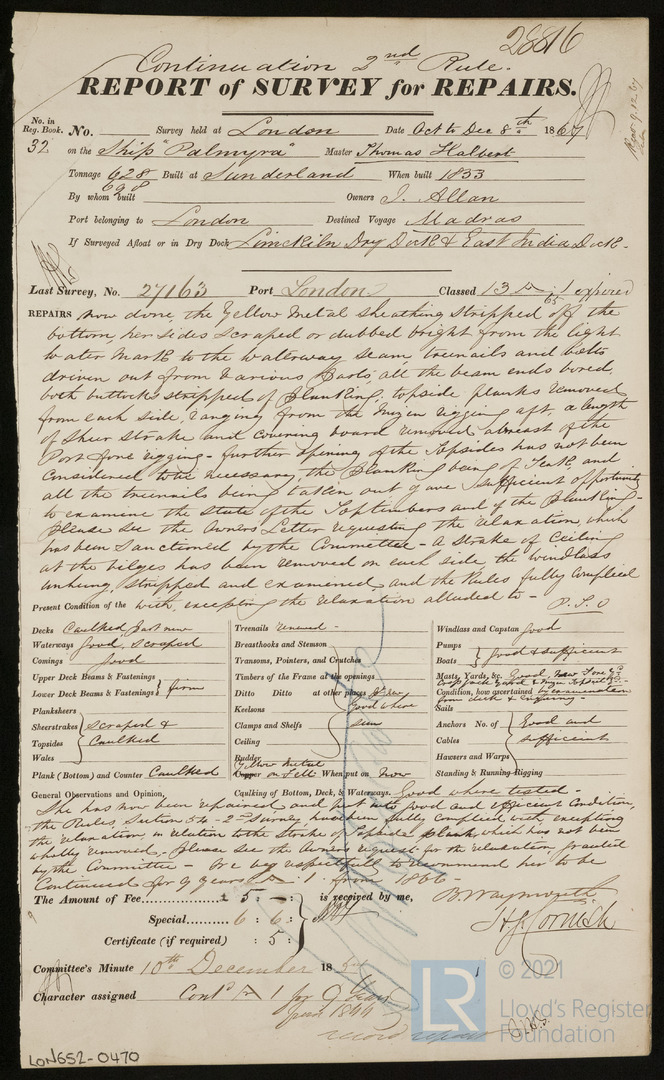 28816
Continuation 2nd Rule.
REPORT of SURVEY for REPAIRS.
No. in Reg. Book. No. Survey held at London Date Oct to Dec 8th 1867
32 on the Ship "Palmyra" Master Thomas Halbert
Tonnage 628 Built at Sunderland When built 1853
698
By whom built Owners J. Allan
Port belonging to London Destined Voyage Madras
If Surveyed Afloat or in Dry Dock Limekiln Dry Dock & East India Dock.
Last Survey, No. 27163 Port London Classed 13 A 1 expired
65
REPAIRS now done, the Yellow Metal sheathing stripped off the
bottom, her sides scraped or dubbed bright from the light
water mark to the waterway seam, treenails and bolts
driven out from various parts, all the beam ends bored,
both buttocks stripped of planking, topside planks removed
from each side, ranging from the Mizen rigging aft, a length
of sheer strake and covering board removed abreast of the
Port fore rigging - further opening of the topsides has not been
considered to be necessary, the planking being of Teak, and
all the treenails being taken out gave sufficient opportunity
to examine the state of the Toptimbers and of the planking -
Please see the Owners Letter requesting the relaxation, which
has been sanctioned by the Committee - A strake of Ceiling
at the bilges has been removed on each side, the windlass
unhung, stripped and examined and the Rules fully complied
Present Condition of the with, excepting the relaxation alluded to - P.T.O
Decks Caulked, just now
Waterways Good, scraped
Comings Good
Upper Deck Beams & Fastenings
Lower Deck Beams & Fastenings } firm
Planksheers
Sheerstrakes
Topsides
Wales
scraped & Caulked
Plank (Bottom) and Counter Caulked
Treenails renewed -
Breasthooks and Stemson
Transoms, Pointers, and Crutches
Timbers of the Frame at the openings
Ditto Ditto at other places
Keelsons
Clamps and Shelfs
Ceiling
Rudder
Good where seen
Copper Yellow Metal on Felt When put on Now
Caulking of Bottom, Deck, & Waterways. Good where tested -
Windlass and Capstan Good
Pumps
Boats } Good & sufficient
Masts, Yards, &c. Good,
Condition, how ascertained by examination
from deck & rigging -
Sails
Anchors No. of
Cables
Hawsers and Warps
Standing & Running Rigging
Good and sufficient
General Observations and Opinion,
She has now been repaired and put into good and efficient condition,
the Rules, Section 54 - 2nd Survey, has been fully complied with, excepting
the relaxation, in relation to the strake of topside plank, which has not been
wholly removed - please see the Owners request for the relaxation, granted
by the Committee - We beg respectfully to recommend her to be
Continued for 9 years A 1 from 1866 -
The Amount of Fee £ 5 : - : is received by me, B. Waymouth
Special 6 : 6 : H. J. Cornish
Certificate (if required) : 5 :
Committee's Minute 10th December 1867
Character assigned Contd A 1 for 9 Years
from 1866
LR
© 2021
Lloyd's Register
Foundation
LON652-0470